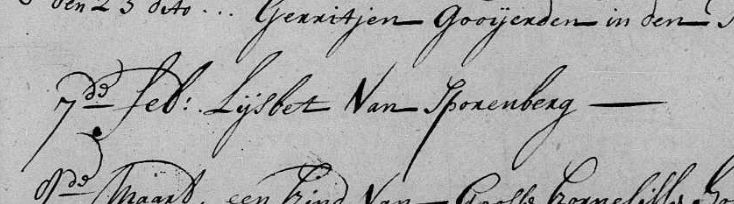 den 23 dito ... Gerritjen Gooijerden in den
7de feb: Lijsbet Van Sporenberg —
Maart. een Kind Van Cornelisse